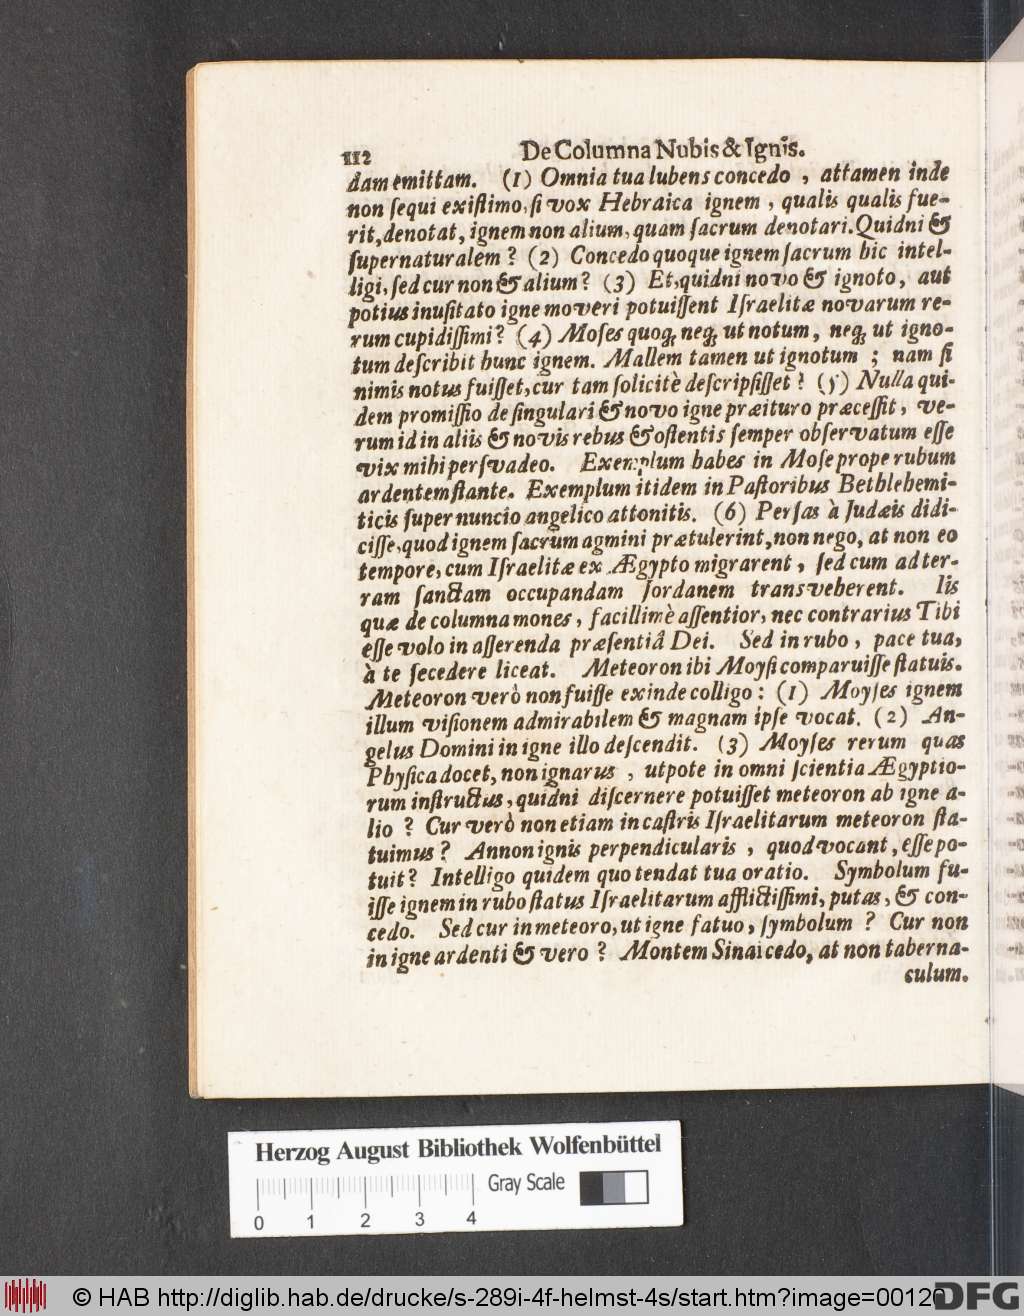 112 De Columna Nubis & Ignis.
dam emittam. (1) Omnia tua lubens concedo, attamen inde
non ſequi exiſtimo, ſi vox Hebraica ignem, qualis qualis fue-
rit, denotat, ignem non alium, quam ſacrum denotari. Quidni &
ſupernaturalem? (2) Concedo quoque ignem ſacrum hic intel-
ligi, ſed cur non & alium? (3) Et, quidni novo & ignoto, aut
potius inuſitato igne moveri potuiſſent Iſraelitæ novarum re-
rum cupidiſſimi? (4) Moſes quoq; neq; ut notum, neq; ut igno-
tum deſcribit hunc ignem. Mallem tamen ut ignotum; nam ſi
nimis notus fuiſſet, cur tam ſolicitè deſcripſiſſet? (5) Nulla qui-
dem promiſſio de ſingulari & novo igne præituro præceſſit, ve-
rum id in aliis & novis rebus & oſtentis ſemper obſervatum eſſe
vix mihi perſvadeo. Exemplum habes in Moſe prope rubum
ardentem ſtante. Exemplum itidem in Paſtoribus Bethlehemi-
ticis ſuper nuncio angelico attonitis. (6) Perſas à Judæis didi-
ciſſe, quod ignem ſacrum agmini prætulerint, non nego, at non eo
tempore, cum Iſraelitæ ex Ægypto migrarent, ſed cum ad ter-
ram ſanctam occupandam Jordanem transveherent. Iis
quæ de columna mones, facillimè aſſentior, nec contrarius Tibi
eſſe volo in aſſerenda præſentiâ Dei. Sed in rubo, pace tua,
à te ſecedere liceat. Meteoron ibi Moyſi comparuiſſe ſtatuis.
Meteoron verò non fuiſſe exinde colligo: (1) Moyſes ignem
illum viſionem admirabilem & magnam ipſe vocat. (2) An-
gelus Domini in igne illo deſcendit. (3) Moyſes rerum quas
Phyſica docet, non ignarus, utpote in omni ſcientia Ægyptio-
rum inſtructus, quidni diſcernere potuiſſet meteoron ab igne a-
lio? Cur verò non etiam in caſtris Iſraelitarum meteoron ſta-
tuimus? Annon ignis perpendicularis, quod vocant, eſſe po-
tuit? Intelligo quidem quo tendat tua oratio. Symbolum fu-
iſſe ignem in rubo ſtatus Iſraelitarum afflictiſſimi, putas, & con-
cedo. Sed cur in meteoro, ut igne fatuo, ſymbolum? Cur non
in igne ardenti & vero? Montem Sinai cedo, at non taberna-
culum.
Herzog August Bibliothek Wolfenbüttel
Gray Scale
0 1 2 3 4
© HAB http://diglib.hab.de/drucke/s-289i-4f-helmst-4s/start.htm?image=00120
DFG